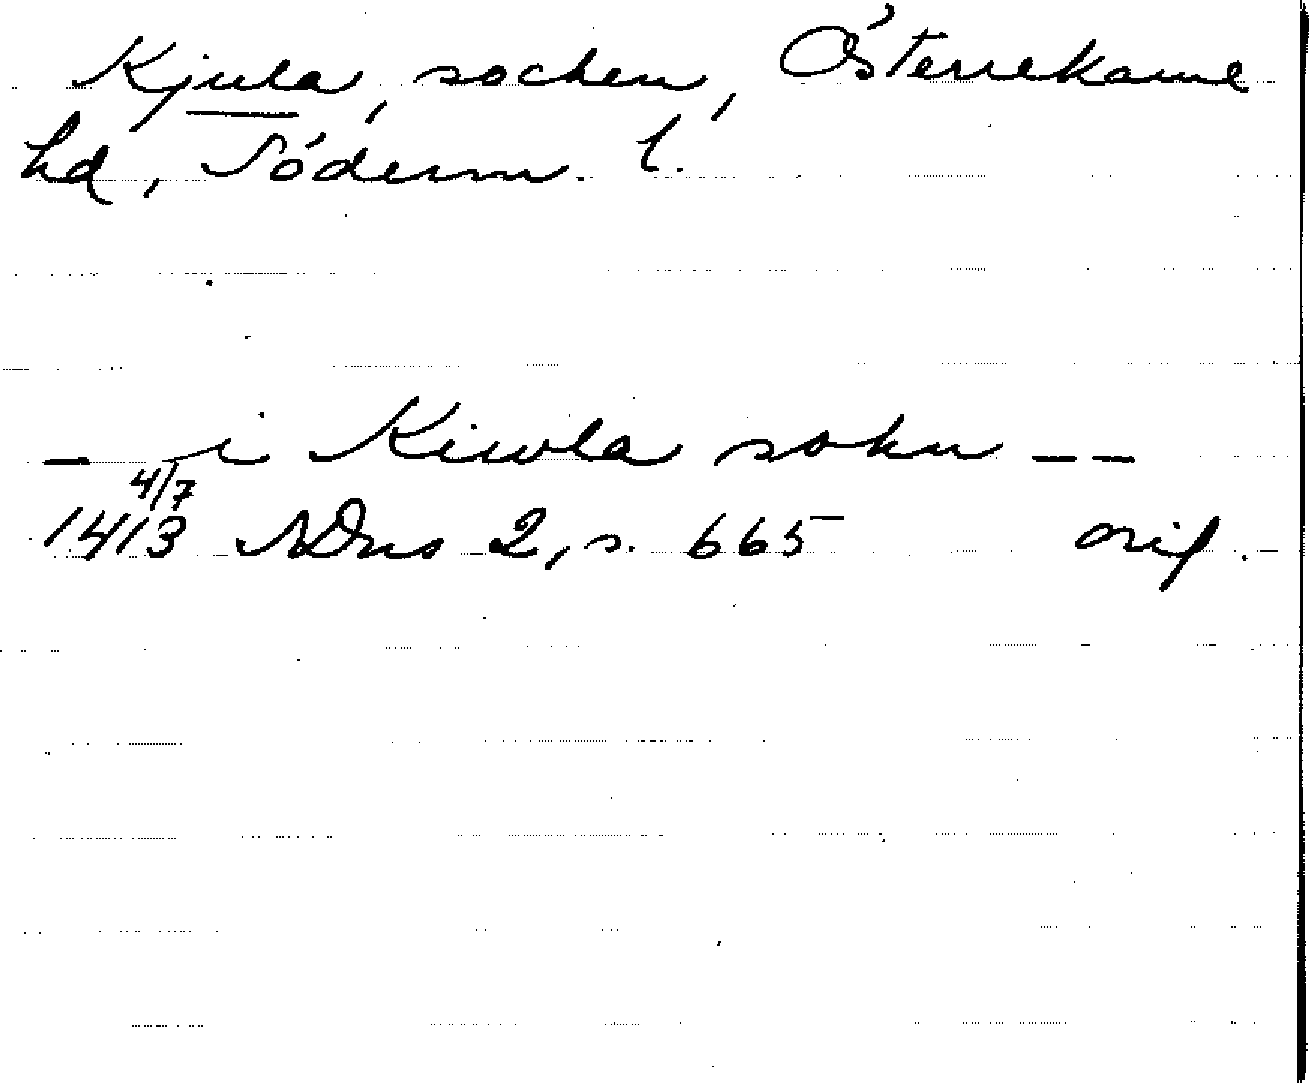 Kjula, socken, Österrekarne
hd, Söderm. l.
— i Kiwla sokn — —
4/7
1413 SDns 2, s. 665 orig.